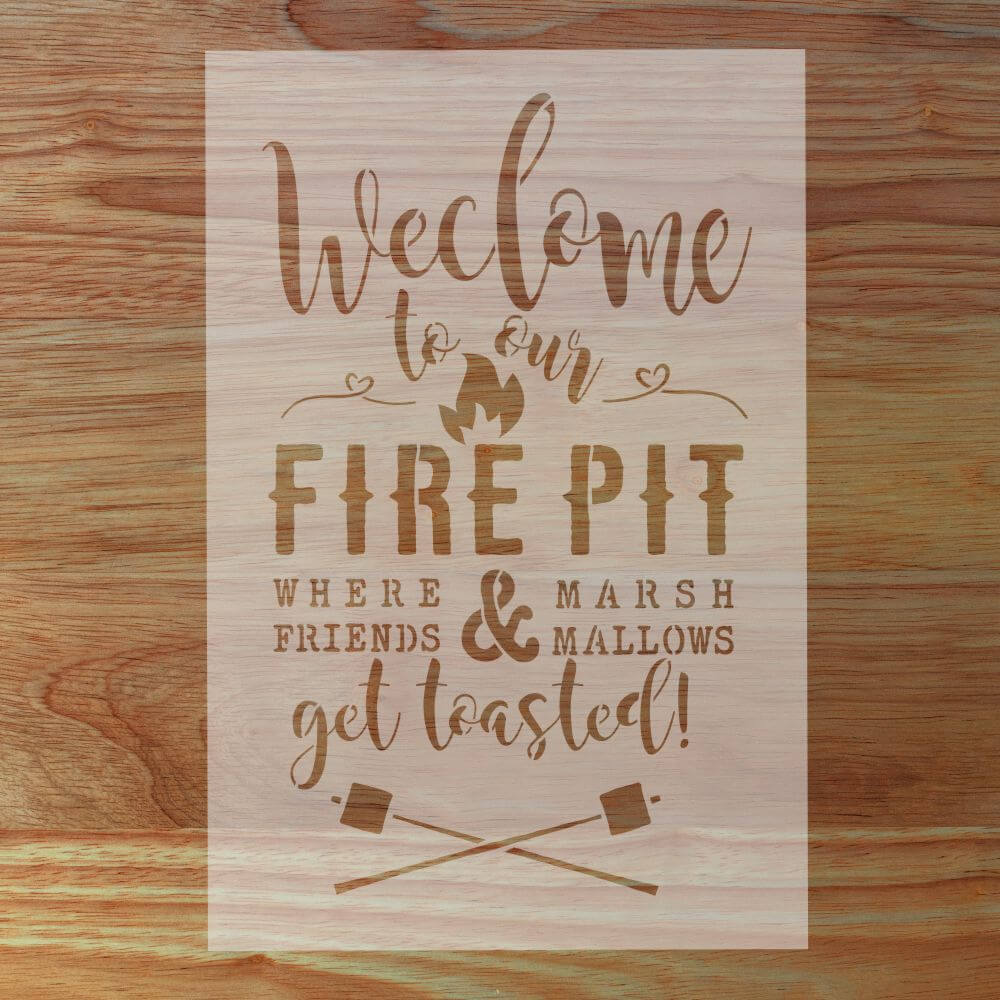 Weclome
to our
FIRE PIT
WHERE & MARSH
FRIENDS MALLOWS
get toasted!